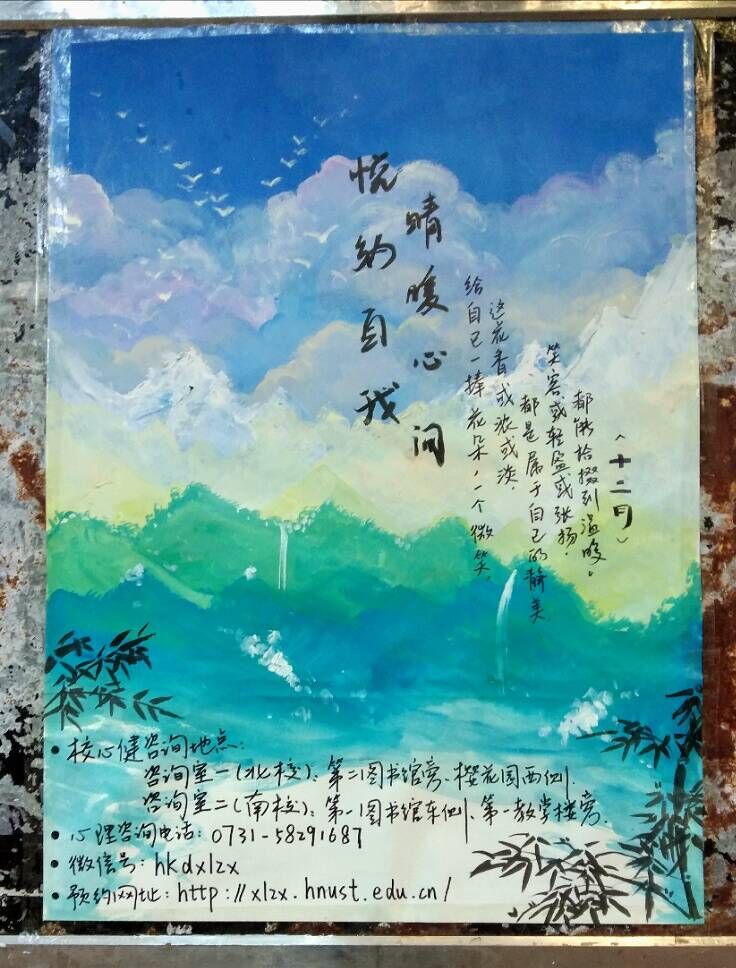 悦纳自我
晴暖心间
给自己一捧花朵，一个微笑，
这花香或浓或淡，
都是属于自己的静美
笑容或轻盈或张扬，
都能拾掇到温暖。
（十二月）
• 校心健咨询地点：
咨询室一（北校）：第二图书馆旁、樱花园西侧.
咨询室二（南校）：第一图书馆东侧、第一教学楼旁.
• 心理咨询电话：0731-58291687
• 微信号：hkdxlzx
• 预约网址：http://xlzx.hnust.edu.cn/